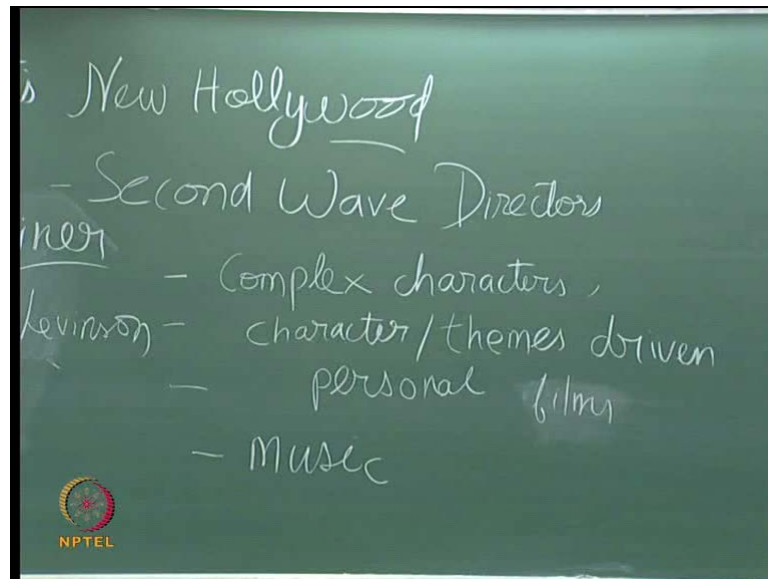 s New Hollywood
- Second Wave Directors
iner
- Complex characters,
Levinson - character/themes driven
- personal films
- Music
NPTEL